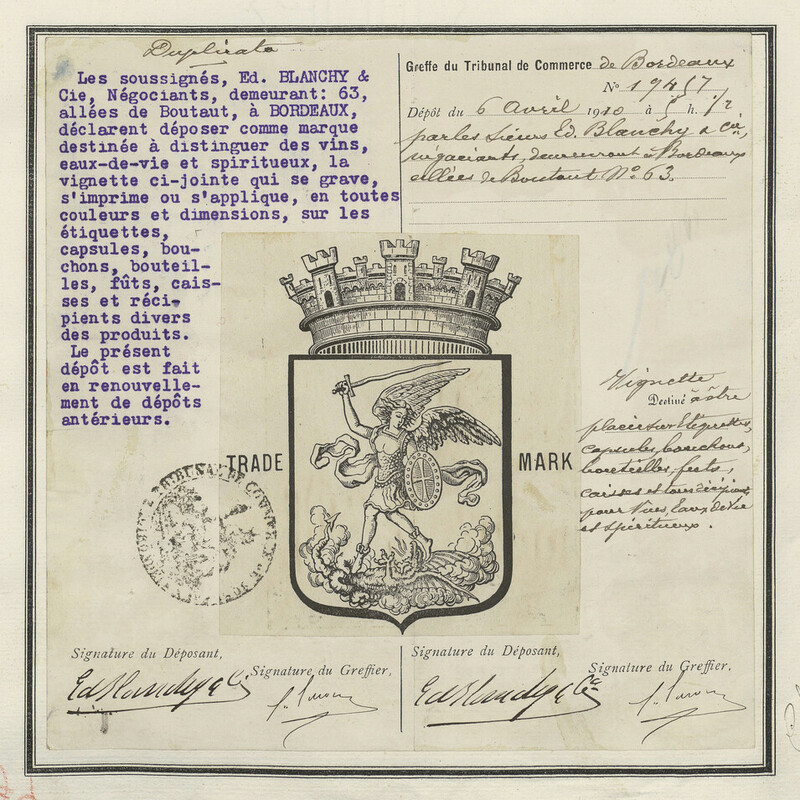 Duplicata
Les soussignés, Ed. BLANCHY &
Cie, Négociants, demeurant: 63,
allées de Boutaut, à BORDEAUX,
déclarent déposer comme marque
destinée à distinguer des vins,
eaux-de-vie et spiritueux, la
vignette ci-jointe qui se grave,
s'imprime ou s'applique, en toutes
couleurs et dimensions, sur les
étiquettes,
capsules, bou-
chons, bouteil-
les, fûts, cais-
ses et réci-
pients divers
des produits.
Le présent
dépôt est fait
en renouvelle-
ment de dépôts
antérieurs.
Greffe du Tribunal de Commerce de Bordeaux
N° 19457
Dépôt du 6 Avril 1910 à 5 h. 1/2
par les Sieurs Ed. Blanchy & Cie,
négociants, demeurant à Bordeaux
allées de Boutaut N° 63.
TRADE MARK
Vignette
Destiné à être
placée sur Etiquettes,
capsules, bouchons,
bouteilles, futs,
caisses et tous
pour Vins, Eaux de Vie
et Spiritueux.
TRIBUNAL DE COMMERCE
Signature du Déposant,
Signature du Greffier,
Ed Blanchy & Cie
Signature du Déposant,
Signature du Greffier,
Ed Blanchy & Cie